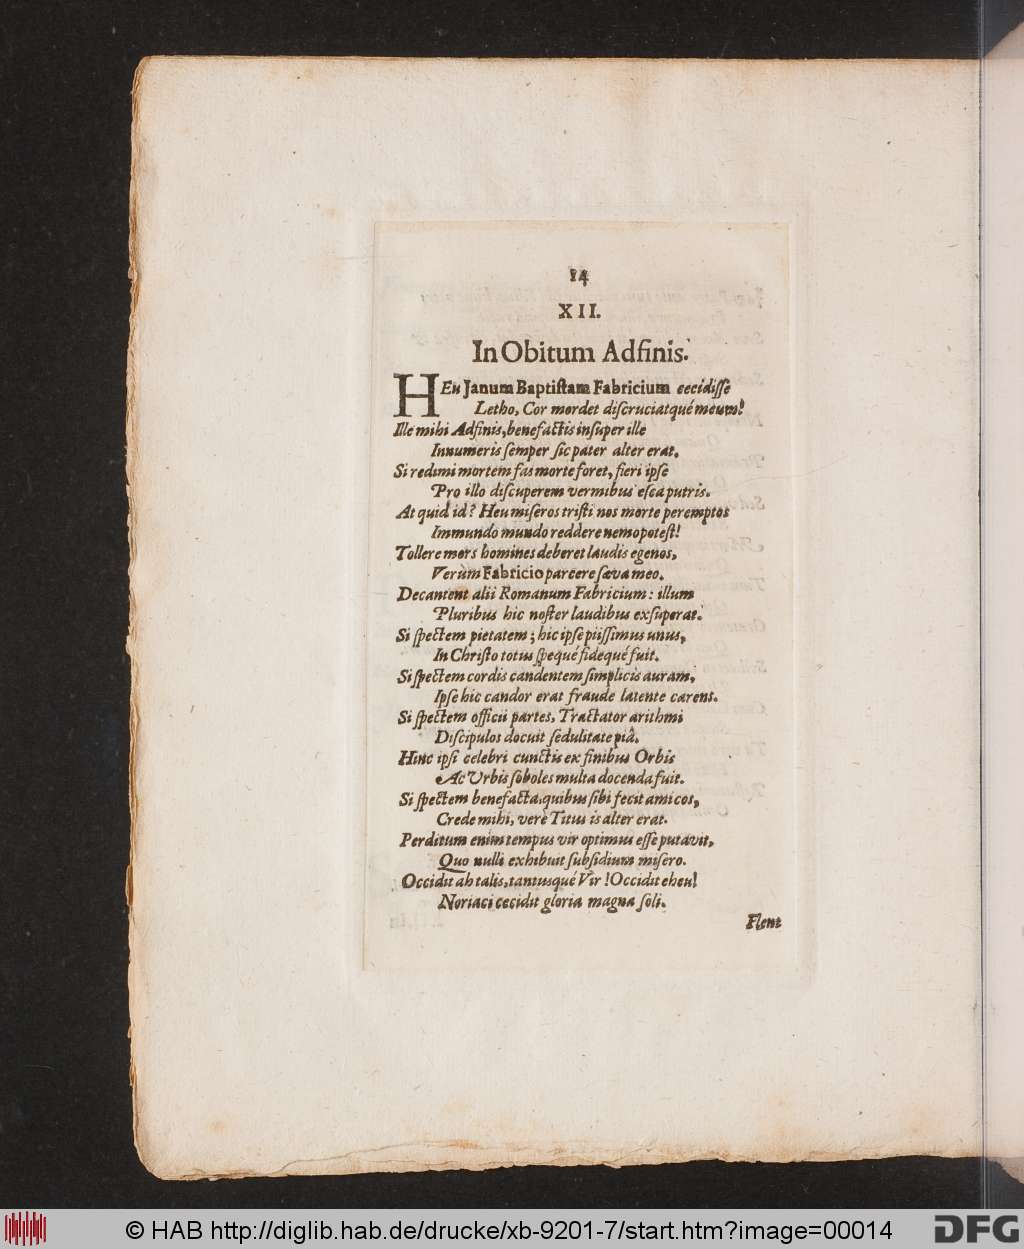 14
XII.
In Obitum Adfinis.
HEu Janum Baptistam Fabricium cecidisse
Letho, Cor mordet discruciatqué meum!
Ille mihi Adfinis, benefactis insuper ille
Innumeris semper sic pater alter erat.
Si redimi mortem fas morte foret, fieri ipse
Pro illo discuperem vermibus esca putris.
At quid id? Heu miseros tristi nos morte peremptos
Immundo mundo reddere nemo potest!
Tollere mors homines deberet laudis egenos,
Verùm Fabricio parcere sæva meo.
Decantent alii Romanum Fabricium: illum
Pluribus hic noster laudibus exsuperat.
Si spectem pietatem; hic ipse piissimus unus,
In Christo totus spequé fidequé fuit.
Si spectem cordis candentem simplicis auram,
Ipse hic candor erat fraude latente carens.
Si spectem officii partes, Tractator arithmi
Discipulos docuit sedulitate piâ.
Hinc ipsi celebri cunctis ex finibus Orbis
Ac Urbis soboles multa docenda fuit.
Si spectem benefacta, quibus sibi fecit amicos,
Crede mihi, verè Titus is alter erat.
Perditum enim tempus vir optimus esse putavit,
Quo nulli exhibuit subsidium misero.
Occidit ah talis, tantusqué Vir! Occidit eheu!
Noriaci cecidit gloria magna soli.
Flent
© HAB http://diglib.hab.de/drucke/xb-9201-7/start.htm?image=00014
DFG